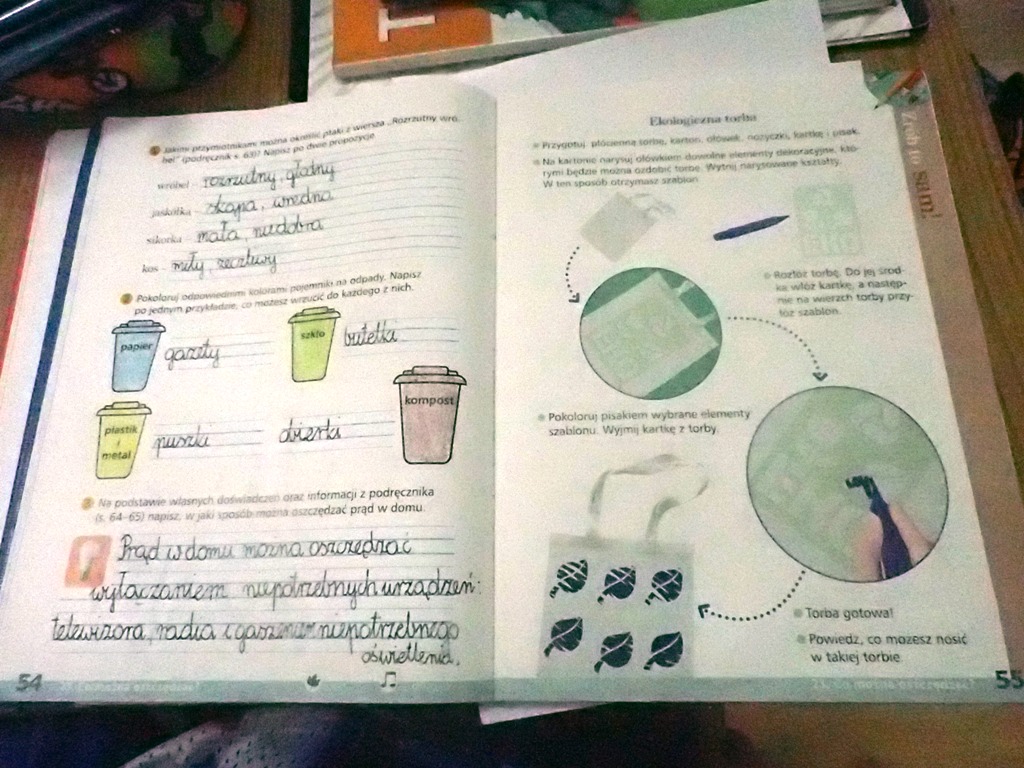 T
1 Jakimi przymiotnikami można określić ptaki z wiersza „Rozrzutny wró-
bel" (podręcznik s. 63)? Napisz po dwie propozycje.
wróbel – rozrzutny, głodny
jaskółka – skąpa, wredna
sikorka – mała, niedobra
kos – miły, życzliwy
2 Pokoloruj odpowiednimi kolorami pojemniki na odpady. Napisz
po jednym przykładzie, co możesz wrzucić do każdego z nich.
papier
gazety
szkło
butelki
plastik
i
metal
puszki
obierki
kompost
3 Na podstawie własnych doświadczeń oraz informacji z podręcznika
(s. 64–65) napisz, w jaki sposób można oszczędzać prąd w domu.
Prąd w domu można oszczędzać
wyłączaniem niepotrzebnych urządzeń:
telewizora, radia i gaszeniem niepotrzebnego
oświetlenia.
54
Ekologiczna torba
Przygotuj: płócienną torbę, karton, ołówek, nożyczki, kartkę i pisak.
Na kartonie narysuj ołówkiem dowolne elementy dekoracyjne, któ-
rymi będzie można ozdobić torbę. Wytnij narysowane kształty.
W ten sposób otrzymasz szablon.
Rozłóż torbę. Do jej środ-
ka włóż kartkę, a następ-
nie na wierzch torby przy-
łóż szablon.
Pokoloruj pisakiem wybrane elementy
szablonu. Wyjmij kartkę z torby.
Torba gotowa!
Powiedz, co możesz nosić
w takiej torbie.
Zrób to sam!
55